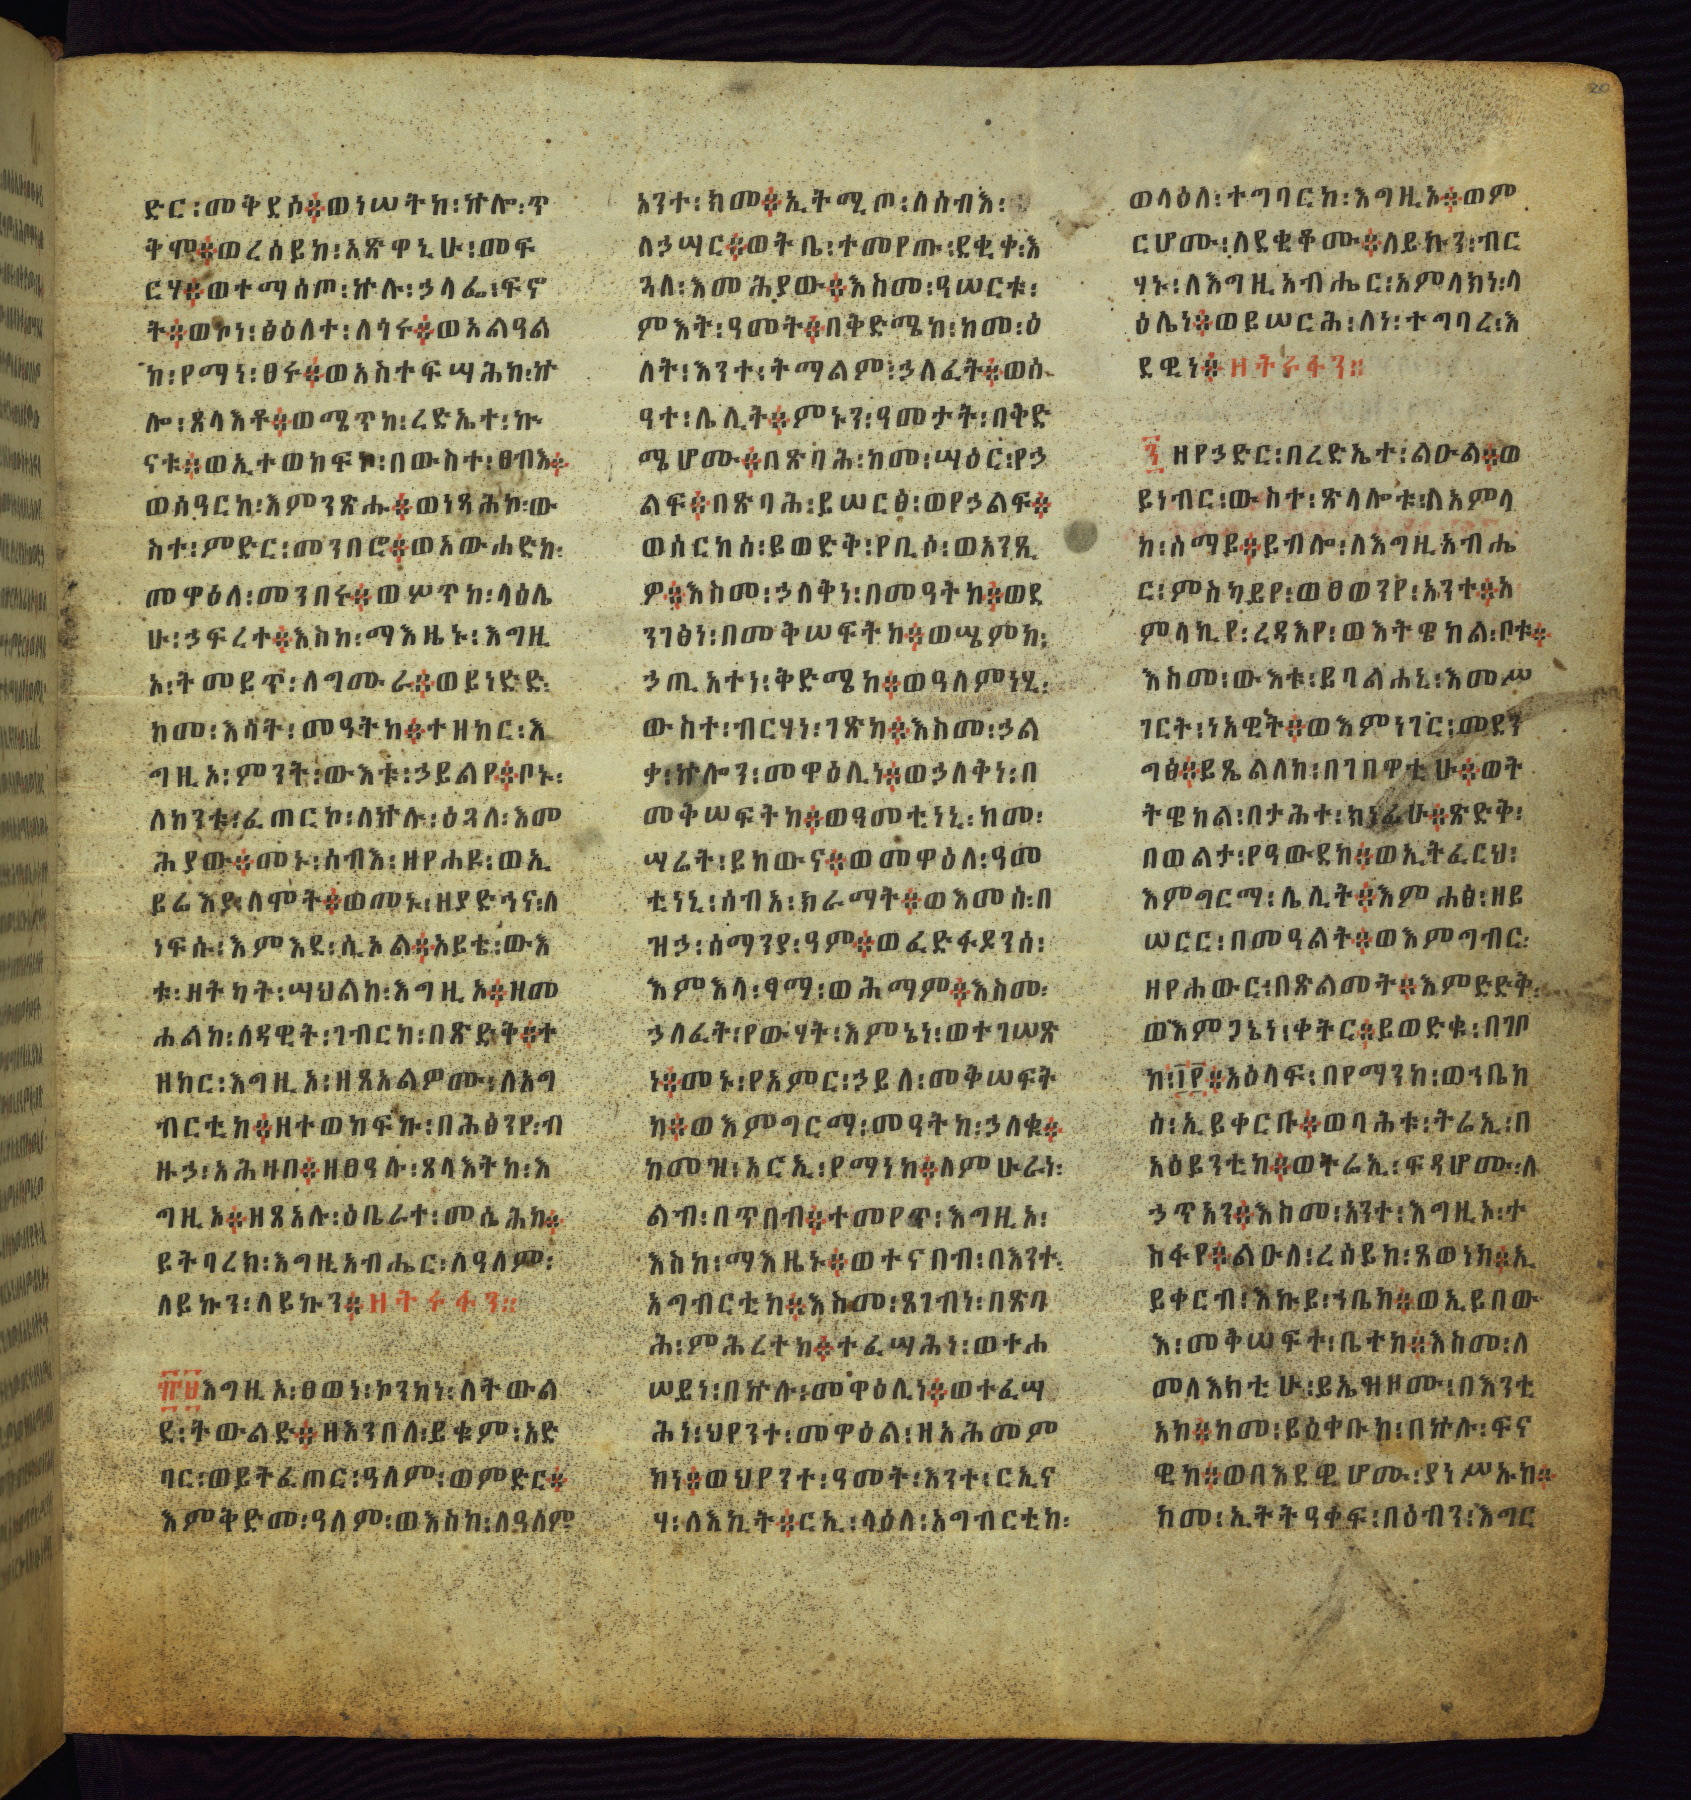 ድር፡መቅደሶ፨ወነሠትከ፡ኵሎ፡ጥ
ቅሞ፨ወረሰይከ፡አጽዋኒሁ፡መፍ
ርሃ፨ወተማሰጦ፡ኵሉ፡ኃላፌ፡ፍኖ
ት፨ወኮነ፡ፅዕለተ፡ለጎሩ፨ወአልዓል
ከ፡የማነ፡ፀሩ፨ወአስተፍሣሕከ፡ኵ
ሎ፡ጸላእቶ፨ወሜጥከ፡ረድኤተ፡ኲ
ናቱ፨ወኢተወከፍኮ፡በውስተ፡ፀብእ፨
ወሰዓርከ፡እምንጽሑ፨ወነጻሕኮ፡ው
ስተ፡ምድር፡መንበሮ፨ወአውሐድከ፡
መዋዕለ፡መንበሩ፨ወሦጥከ፡ላዕሌ
ሁ፡ኃፍረተ፨እስከ፡ማእዜኑ፡እግዚ
አ፡ትመይጥ፡ለግሙራ፨ወይነድድ፡
ከመ፡እሳት፡መዓትከ፨ተዘከር፡እ
ግዚኦ፡ምንት፡ውእቱ፡ኃይልየ፨ቦኑ፡
ለከንቱ፡ፈጠርኮ፡ለኵሉ፡ዕጓለ፡እመ
ሕያው፨መኑ፡ሰብእ፡ዘየሐዩ፡ወኢ
ይሬእያ፡ለሞት፨ወመኑ፡ዘያድኅና፡ለ
ነፍሱ፡እምእደ፡ሲኦል፨አይቴ፡ውእ
ቱ፡ዘትካት፡ሣህልከ፡እግዚኦ፨ዘመ
ሐልከ፡ለዳዊት፡ገብርከ፡በጽድቅ፨ተ
ዘከር፡እግዚኦ፡ዘጸአልዎሙ፡ለአግ
ብርቲከ፨ዘተወከፍኩ፡በሕፅንየ፡ብ
ዙኃ፡አሕዛበ፨ዘፀዓሉ፡ጸላእትከ፡እ
ግዚኦ፨ዘጸአሉ፡ዕቤራተ፡መሲሕከ፨
ይትባረክ፡እግዚአብሔር፡ለዓለም፡
ለይኩን፡ለይኩን፨ዘትሩፋን።
፹፱እግዚኦ፡ፀወነ፡ኮንከነ፡ለትውል
ደ፡ትውልድ፨ዘእንበለ፡ይቁም፡አድ
ባር፡ወይትፈጠር፡ዓለም፡ወምድር፨
እምቅድመ፡ዓለም፡ወእስከ፡ለዓለም
አንተ፡ክመ፨ኢትሚጦ፡ለሰብእ፡
ለኃሣር፨ወትቤ፡ተመየጡ፡ደቂቀ፡እ
ጓለ፡እመሕያው፨እስመ፡ዓሠርቱ፡
ምእት፡ዓመት፨በቅድሜከ፡ከመ፡ዕ
ለት፡እንተ፡ትማልም፡ኃለፈት፨ወሰ
ዓተ፡ሌሊት፨ምኑን፡ዓመታት፡በቅድ
ሜሆሙ፨በጽባሕ፡ከመ፡ሣዕር፡የኃ
ልፍ፨በጽባሕ፡ይሠርፅ፡ወየኃልፍ፨
ወሰርከሰ፡ይወድቅ፡የቢሶ፡ወአንጺ
ዎ፨እስመ፡ኃለቅነ፡በመዓትከ፨ወደ
ንገፅነ፡በመቅሠፍትከ፨ወሤምከ፡
ኃጢአተነ፡ቅድሜከ፨ወዓለምነሂ፡
ውስተ፡ብርሃነ፡ገጽከ፨እስመ፡ኃል
ቃ፡ኵሎን፡መዋዕሊነ፨ወኃለቅነ፡በ
መቅሠፍትከ፨ወዓመቲነኒ፡ከመ፡
ሣሬት፡ይከውና፨ወመዋዕለ፡ዓመ
ቲነኒ፡ሰብአ፡ክራማት፨ወእመሰ፡በ
ዝኃ፡ሰማንያ፡ዓም፨ወፈድፋዶንሰ፡
እምእላ፡ፃማ፡ወሕማም፨እስመ፡
ኃለፈት፡የውሃት፡እምኔነ፡ወተገሠጽ
ነ፨መኑ፡የአምር፡ኃይለ፡መቅሠፍት
ከ፨ወእምግርማ፡መዓትከ፡ኃለቁ፨
ከመዝ፡አርኢ፡የማነከ፨ለምሁራነ፡
ልብ፡በጥበብ፨ተመየጥ፡እግዚኦ፡
እስከ፡ማእዜኑ፨ወተናበብ፡በእንተ፡
አግብርቲከ፨እስመ፡ጸገብነ፡በጽባ
ሕ፡ምሕረተከ፨ተፈሣሕነ፡ወተሐ
ሠይነ፡በኵሉ፡መዋዕሊነ፨ወተፈሣ
ሕነ፡ህየንተ፡መዋዕል፡ዘአሕመም
ከነ፨ወህየንተ፡ዓመት፡እንተ፡ርኢና
ሃ፡ለእኪት፨ርኢ፡ላዕለ፡አግብርቲከ፡
ወላዕለ፡ተግባርከ፡እግዚኦ፨ወም
ርሆሙ፡ለደቂቆሙ፨ለይኩን፡ብር
ሃኑ፡ለእግዚአብሔር፡አምላክነ፡ላ
ዕሌነ፨ወይሠርሕ፡ለነ፡ተግባረ፡እ
ደዊነ፨ዘትሩፋን።
፺ዘየኃድር፡በረድኤተ፡ልዑል፨ወ
ይነብር፡ውስተ፡ጽላሎቱ፡ለአምላ
ከ፡ሰማይ፨ይብሎ፡ለእግዚአብሔ
ር፡ምስካይየ፡ወፀወንየ፡አንተ፨አ
ምላኪየ፡ረዳእየ፡ወእትዌከል፡ቦቱ፨
እስመ፡ውእቱ፡ይባልሐኒ፡እመሥ
ገርት፡ነአዊት፨ወእምነገር፡መደን
ግፅ፨ይጼልለከ፡በገበዋቲሁ፨ወት
ትዌከል፡በታሕተ፡ክነፊሁ፨ጽድቅ፡
በወልታ፡የዓውደከ፨ወኢትፈርህ፡
እምግርማ፡ሌሊት፨እምሐፅ፡ዘይ
ሠርር፡በመዓልት፨ወእምግብር፡
ዘየሐውር፡በጽልመት፨እምድድቅ፡
ወእምጋኔነ፡ቀትር፨ይወድቁ፡በገቦ
ከ፡፲፻፨አዕላፍ፡በየማንከ፡ወኀቤከ
ሰ፡ኢይቀርቡ፨ወባሕቱ፡ትሬኢ፡በ
አዕይንቲከ፨ወትሬኢ፡ፍዳሆሙ፡ለ
ኃጥአን፨እስመ፡አንተ፡እግዚኦ፡ተ
ስፋየ፨ልዑለ፡ረሰይከ፡ጸወነከ፨ኢ
ይቀርብ፡እኩይ፡ኀቤከ፨ወኢይበው
እ፡መቅሠፍት፡ቤተከ፨እስመ፡ለ
መላእክቲሁ፡ይኤዝዞሙ፡በእንቲ
አከ፨ከመ፡ይዕቀቡከ፡በኵሉ፡ፍና
ዊከ፨ወበእደዊሆሙ፡ያነሥኡከ፨
ከመ፡ኢትትዓቀፍ፡በዕብን፡እግር
20